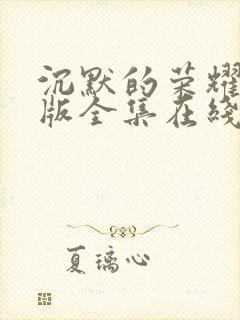 沉默的荣耀
版全集在线
夏璃心